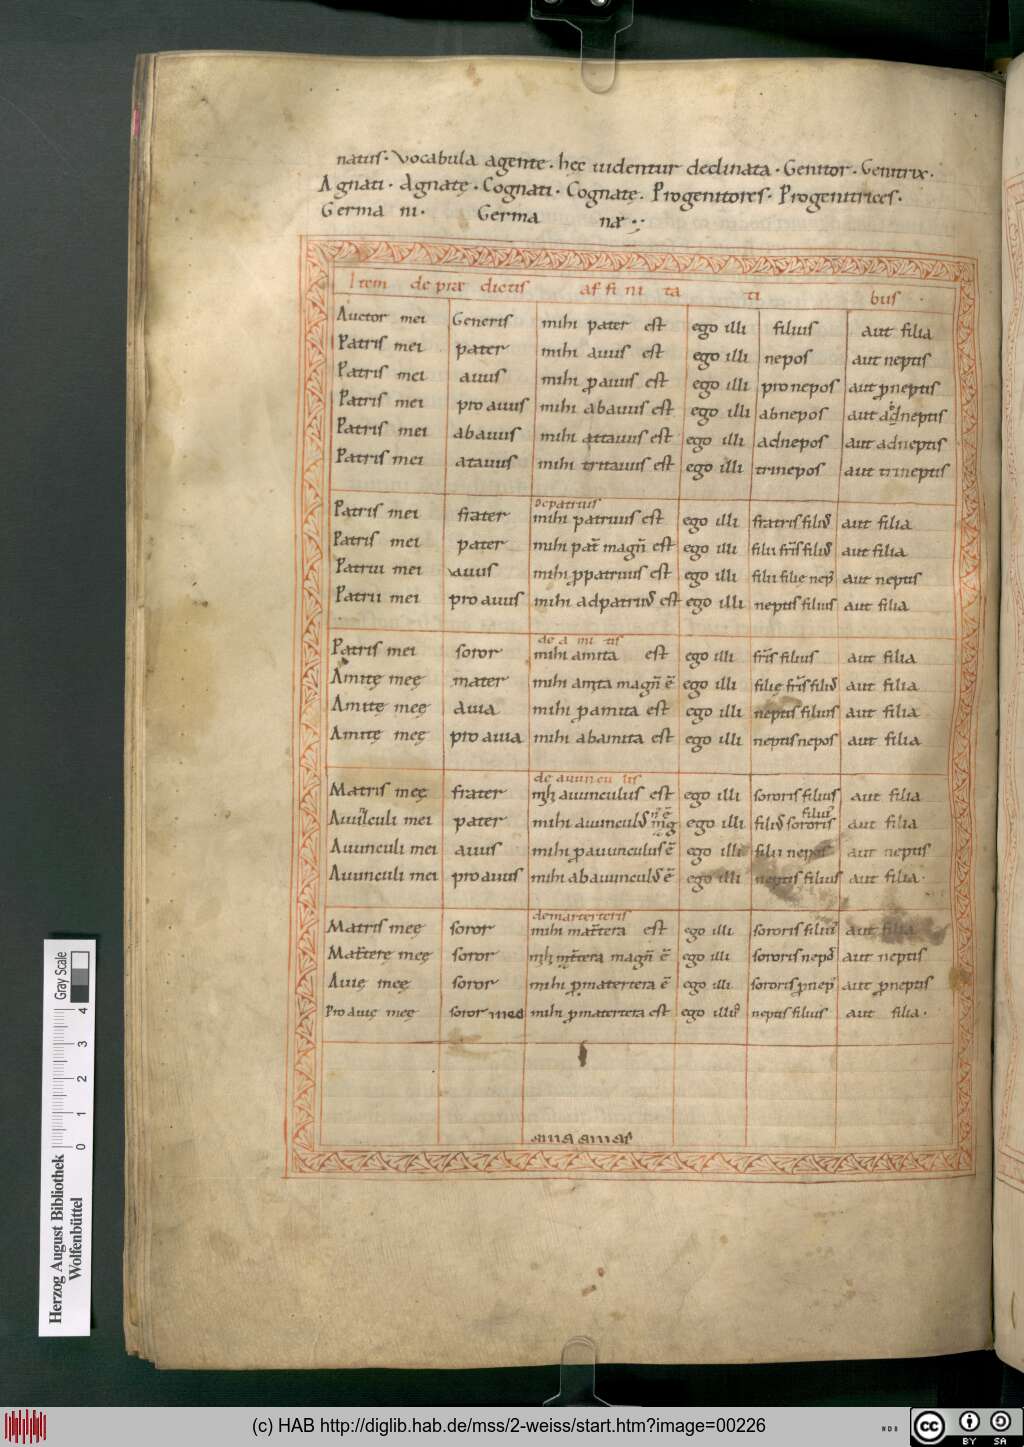 natus· vocabula agente· hęc uidentur declinata· Genitor· Genitrix·
Agnati· Agnatę· Cognati· Cognatę· Progenitores· Progenitrices·
Germa ni· Germa næ·
Item de præ dictis af fi ni ta ti bus
Auctor mei Generis mihi pater est ego illi filius aut filia
Patris mei pater mihi auus est ego illi nepos aut neptis
Patris mei auus mihi ꝓauus est ego illi pro nepos aut ꝓneptis
Patris mei pro auus mihi abauus est ego illi abnepos aut adneptis
Patris mei abauus mihi attauus est ego illi adnepos aut adneptis
Patris mei atauus mihi tritauus est ego illi trinepos aut trineptis
De patruis
Patris mei frater mihi patruus est ego illi fratris filiꝰ aut filia
Patris mei pater mihi pat̄ magn̄ est ego illi filii fr̄is filiꝰ aut filia
Patrui mei auus mihi ꝓpatruus est ego illi filii filię nep̄ aut neptis
Patrii mei pro auus mihi adpatruꝰ est ego illi neptis filius aut filia
de a mi tis
Patris mei soror mihi amita est ego illi fr̄is filius aut filia
Amitę meę mater mihi amita magn̄ ē ego illi filię fr̄is filiꝰ aut filia
Amitę meę auia mihi ꝓamita est ego illi neptis filius aut filia
Amitę meę pro auia mihi abamita est ego illi neptis nepos aut filia
de auuncu lis
Matris meę frater mih auunculus est ego illi sororis filius aut filia
filius
Auunculi mei pater mihi auunculꝰ mag ē ego illi filiꝰ sororis aut filia
Auunculi mei auus mihi ꝓauunculus ē ego illi filii nepos aut neptis
Auunculi mei pro auus mihi abauunculꝰ ē ego illi neptis filius aut filia·
de marterteris
Matris meę soror mihi mat̄tera est ego illi sororis filius aut filia
Mat̄terę meę soror mih mat̄tera magn̄ ē ego illi sororis nepꝰ aut neptis
Auię meę soror mihi ꝓmatertera ē ego illi sororis ꝓnep̄ aut ꝓneptis
Pro auię meę soror meę mihi ꝓmatertera est ego illi neptis filius aut filia·
Gray Scale
0 1 2 3 4
Herzog August Bibliothek
Wolfenbüttel
(c) HAB http://diglib.hab.de/mss/2-weiss/start.htm?image=00226
WDB
cc
BY SA